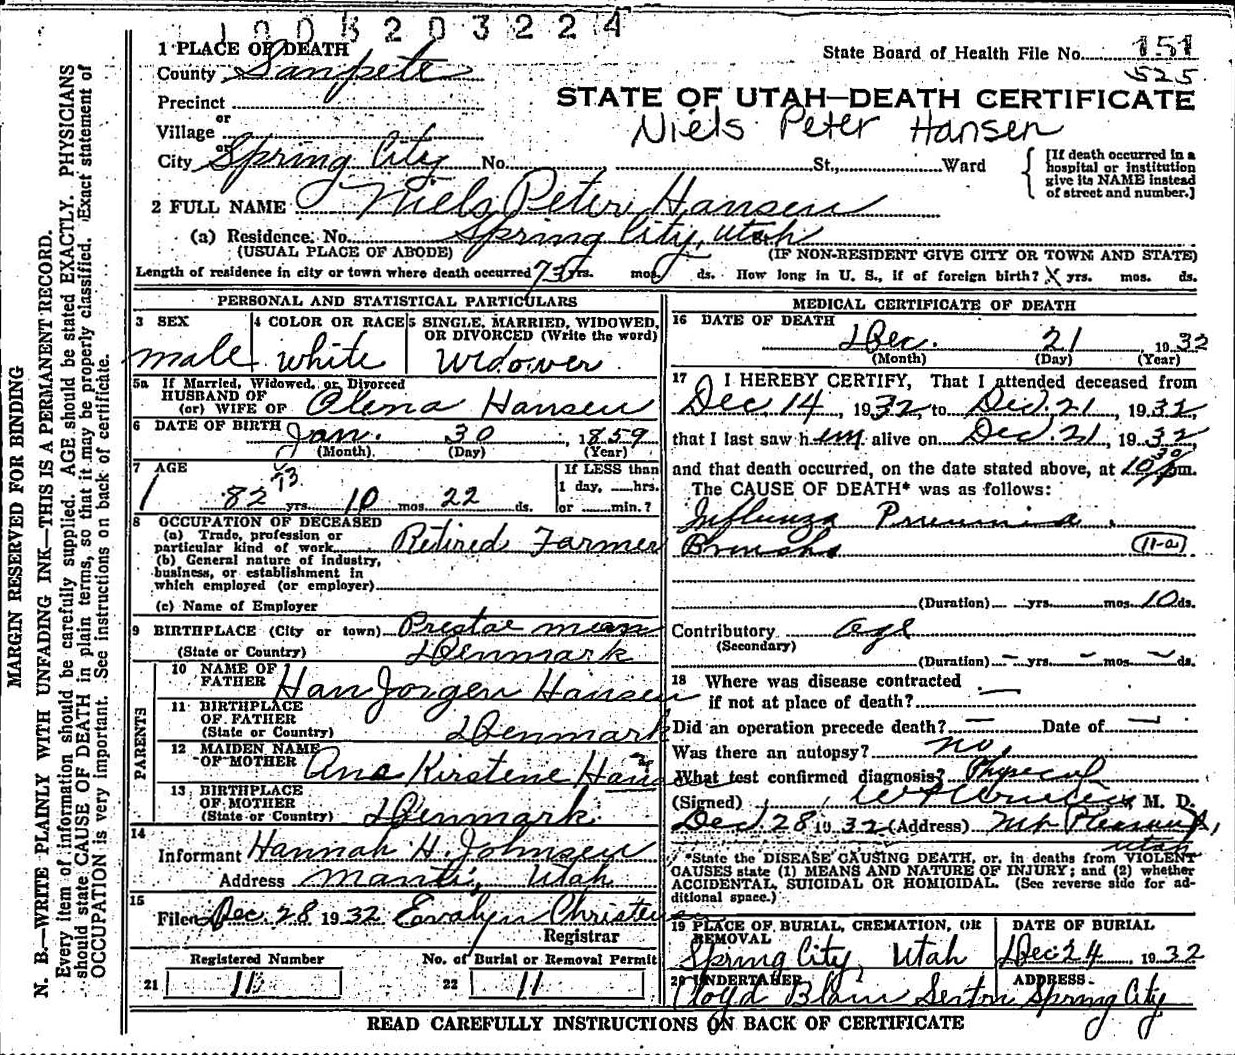 1003203224
State Board of Health File No. 151
525
1 PLACE OF DEATH
County Sanpete
STATE OF UTAH—DEATH CERTIFICATE
Precinct
or
Village
or
Niels Peter Hansen
City Spring City No. St., Ward
[If death occurred in a hospital or institution give its NAME instead of street and number.]
2 FULL NAME Niels Peter Hansen
(a) Residence. No. Spring City, Utah
(USUAL PLACE OF ABODE) (IF NON-RESIDENT GIVE CITY OR TOWN AND STATE)
Length of residence in city or town where death occurred 73 yrs. mos. ds. How long in U. S., if of foreign birth? X yrs. mos. ds.
PERSONAL AND STATISTICAL PARTICULARS
3 SEX
male
4 COLOR OR RACE
white
5 SINGLE, MARRIED, WIDOWED, OR DIVORCED (Write the word)
Widower
5a If Married, Widowed, or Divorced
HUSBAND OF
(or) WIFE OF Olena Hansen
6 DATE OF BIRTH Jan. 30, 1859
(Month) (Day) (Year)
7 AGE
73
82 yrs. 10 mos. 22 ds.
If LESS than
1 day, hrs.
or min.?
8 OCCUPATION OF DECEASED
(a) Trade, profession or
particular kind of work Retired Farmer
(b) General nature of industry,
business, or establishment in
which employed (or employer)
(c) Name of Employer
9 BIRTHPLACE (City or town)
(State or Country) Denmark
PARENTS
10 NAME OF
FATHER Han Jorgen Hansen
11 BIRTHPLACE
OF FATHER
(State or Country) Denmark
12 MAIDEN NAME
OF MOTHER Ane Kirstene
13 BIRTHPLACE
OF MOTHER
(State or Country) Denmark
14
Informant Hannah H. Johnsen
Address Manti, Utah
15
Filed Dec. 28 1932
Registrar
Registered Number No. of Burial or Removal Permit
21 11 22 11
MEDICAL CERTIFICATE OF DEATH
16 DATE OF DEATH
Dec. 21 1932
(Month) (Day) (Year)
17 I HEREBY CERTIFY, That I attended deceased from
Dec. 14, 1932, to Dec. 21, 1932,
that I last saw h im alive on Dec. 21, 1932,
and that death occurred, on the date stated above, at 10 30 pm.
The CAUSE OF DEATH* was as follows:
11-a
(Duration) yrs. mos. 10 ds.
Contributory Age
(Secondary)
(Duration) – yrs. – mos. – ds.
18 Where was disease contracted
if not at place of death? —
Did an operation precede death? — Date of —
Was there an autopsy? no,
What test confirmed diagnosis? Physical
(Signed) M. D.
Dec 28 1932 (Address) Mt Pleasant,
Utah
*State the DISEASE CAUSING DEATH, or, in deaths from VIOLENT
CAUSES state (1) MEANS AND NATURE OF INJURY; and (2) whether
ACCIDENTAL, SUICIDAL OR HOMICIDAL. (See reverse side for ad-
ditional space.)
19 PLACE OF BURIAL, CREMATION, OR REMOVAL
Spring City, Utah
DATE OF BURIAL
Dec. 24, 1932
20 UNDERTAKER
Lloyd Blain Sexton
ADDRESS
Spring City
READ CAREFULLY INSTRUCTIONS ON BACK OF CERTIFICATE
MARGIN RESERVED FOR BINDING
N. B.—WRITE PLAINLY WITH UNFADING INK—THIS IS A PERMANENT RECORD.
Every item of information should be carefully supplied. AGE should be stated EXACTLY. PHYSICIANS
should state CAUSE OF DEATH in plain terms, so that it may be properly classified. Exact statement of
OCCUPATION is very important. See instructions on back of certificate.